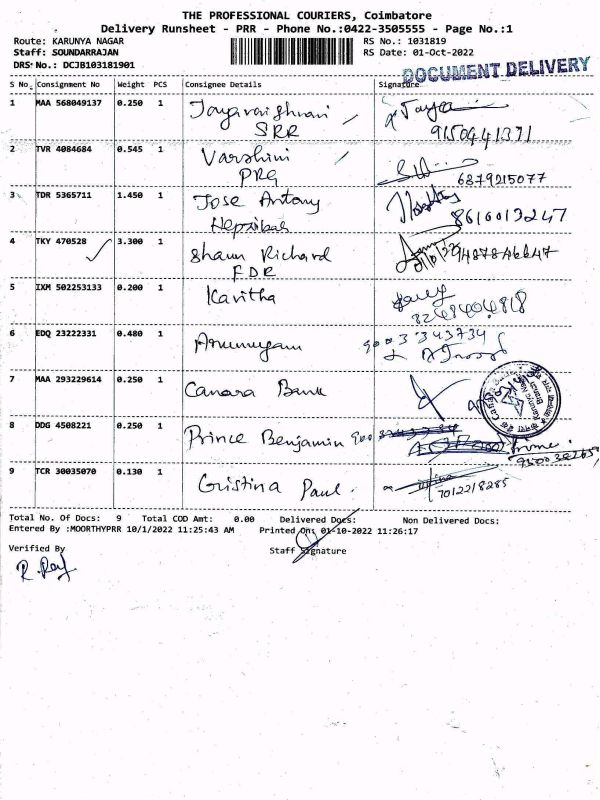 THE PROFESSIONAL COURIERS, Coimbatore
Delivery Runsheet - PRR - Phone No.:0422-3505555 - Page No.:1
Route: KARUNYA NAGAR RS No.: 1031819
Staff: SOUNDARRAJAN RS Date: 01-Oct-2022
DRS No.: DCJB103181901
DOCUMENT DELIVERY
S No. Consignment No Weight PCS Consignee Details Signature
1 MAA 568049137 0.250 1 Jayavaishnavi Jaya
SRR 9150441371
2 TVR 4084684 0.545 1 Varshini
PRG 6379215077
3 TDR 5365711 1.450 1 Jose Antony
Hepzibah 8610013247
4 TKY 470528 3.300 1 Shaun Richard
FDR
5 IXM 502253133 0.200 1 Kavitha
6 EDQ 23222331 0.480 1 Arumugam 9003343734
7 MAA 293229614 0.250 1 Canara Bank
8 DDG 4508221 0.250 1 Prince Benjamin
9 TCR 30035070 0.130 1 Cristina Paul.
7012218285
Total No. Of Docs: 9 Total COD Amt: 0.00 Delivered Docs: Non Delivered Docs:
Entered By :MOORTHYPRR 10/1/2022 11:25:43 AM Printed On: 01-10-2022 11:26:17
Verified By Staff Signature